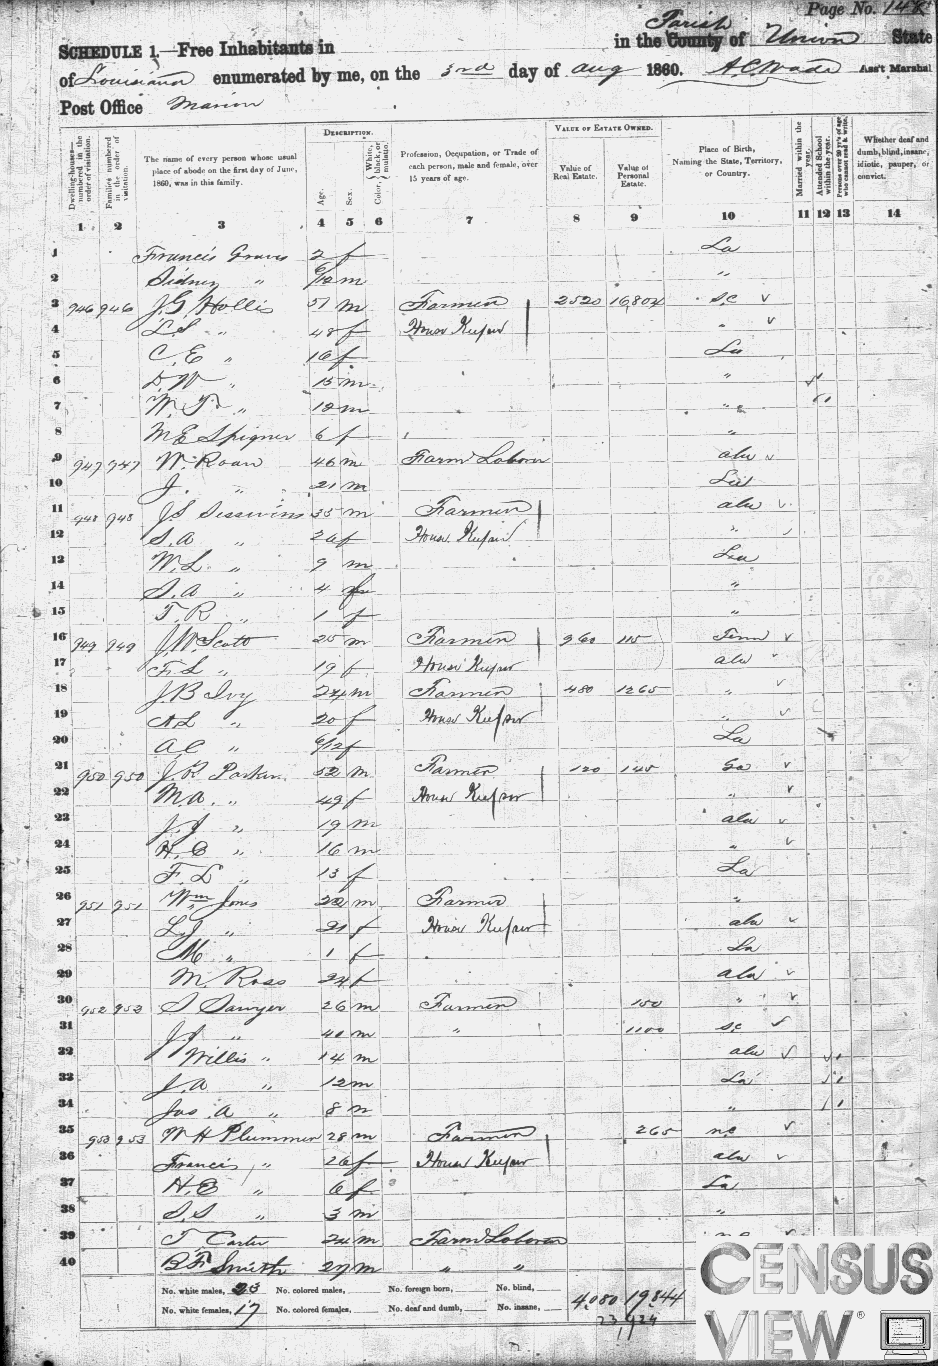 Page No. 148
SCHEDULE 1.—Free Inhabitants in in the County of Parish Union State
of Louisiana enumerated by me, on the 3rd day of Aug 1860. A.C. Wade Ass't Marshal
Post Office Marion
Dwelling-houses—numbered in the order of visitation.
Families numbered in the order of visitation.
The name of every person whose usual place of abode on the first day of June, 1860, was in this family.
DESCRIPTION.
Age.
Sex.
Color, White, black, or mulatto.
Profession, Occupation, or Trade of each person, male and female, over 15 years of age.
VALUE OF ESTATE OWNED.
Value of Real Estate.
Value of Personal Estate.
Place of Birth, Naming the State, Territory, or Country.
Married within the year.
Attended School within the year.
Persons over 20 y'rs of age who cannot read & write.
Whether deaf and dumb, blind, insane, idiotic, pauper, or convict.
1 2 3 4 5 6 7 8 9 10 11 12 13 14
1 Francis Graves 2 f La
2 Sidney " m "
3 946 946 J.G Hollis 51 m Farmer 2520 16,804 S.C
4 L.S. " 48 f House Keeper "
5 C.E " 16 f La
6 D.W " 13 m "
7 W.T. " m "
8 M E Spigner 6 f "
9 947 947 W. Roan 46 m Farm Laborer ala
10 J. " 21 m La
11 948 948 J.S 35 m Farmer ala
12 S.A " 26 f House Keeper "
13 W.L. " 9 m La
14 S.A " 4 "
15 T.R " 1 f "
16 949 949 J W Scott 25 m Farmer 960 115 Tenn
17 F.L " 19 f House Keeper ala
18 J.B Ivy 24 m Farmer 480 1265 "
19 A L " 20 f House Keeper "
20 A C " 9/12 f La
21 950 950 J.R Parker 52 m Farmer 120 145 Ga
22 M.A. " 49 f House Keeper "
23 J.J " 19 m ala
24 H.C " 16 m "
25 F.L " 13 f La
26 951 951 Wm Jones 22 m Farmer "
27 L.J " 21 f House Keeper ala
28 M " 1 f La
29 M. Ross 24 f ala
30 952 952 S Sawyer 26 m Farmer 150 "
31 J. " 40 m " 1100 S.C
32 Willis " 14 m ala
33 J.A " 12 m La
34 Jas. A " 8 m "
35 953 953 W H Plummer 28 m Farmer 265 N.C
36 Francis " 26 f House Keeper ala
37 H.E " 6 f La
38 S.S " 3 m "
39 T Carter 24 m Farm Laborer
40 B F Smith 27 m " "
No. white males, 23 No. colored males, No. foreign born, No. blind,
No. white females, 17 No. colored females, No. deaf and dumb, No. insane,
4,080 19,844
23,924
CENSUS
VIEW®